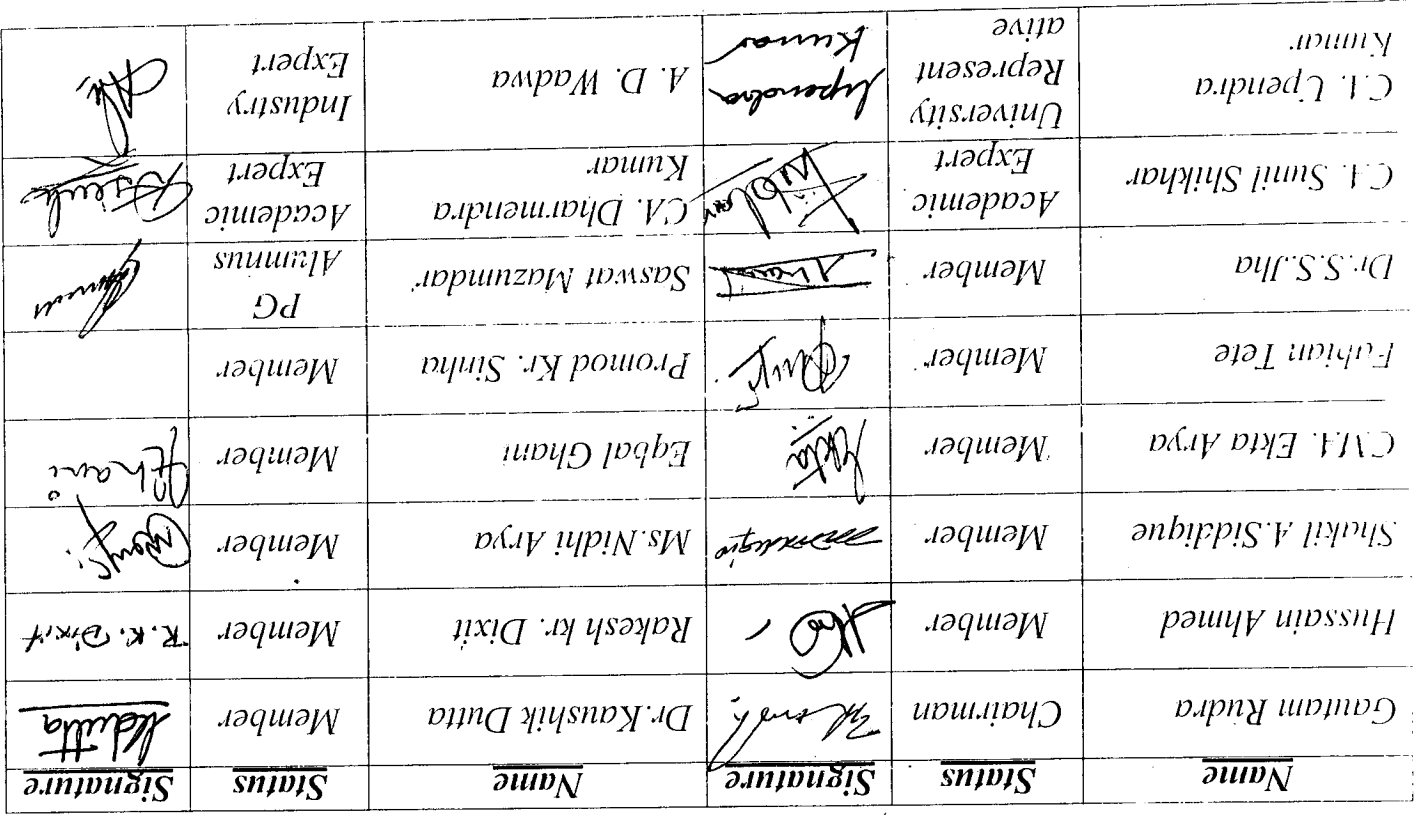 Name Status Signature Name Status Signature
Gautam Rudra Chairman Dr.Kaushik Dutta Member Kdutta
Hussain Ahmed Member Rakesh kr. Dixit Member R.K. Dixit
Shakil A.Siddique Member Ms.Nidhi Arya Member
CMA. Ekta Arya Member Ekta Eqbal Ghani Member Ghani
Fabian Tete Member Promod Kr. Sinha Member
Dr.S.S.Jha Member Saswat Mazumdar PG
Alumnus
CA. Sunil Shikhar Academic CA. Dharmendra Academic
Expert Kumar Expert
C.A. Upendra University Upendra A. D. Wadwa Industry
Kumar Represent Kumar Expert
ative